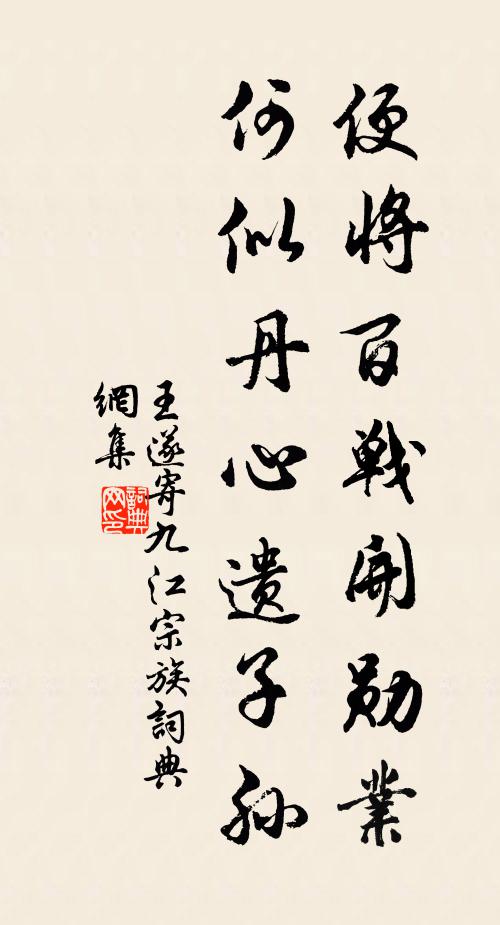 便將百戰開勛業
何似丹心遺子孫
王遂寄九江宗族詞典
網集
詞典
网印